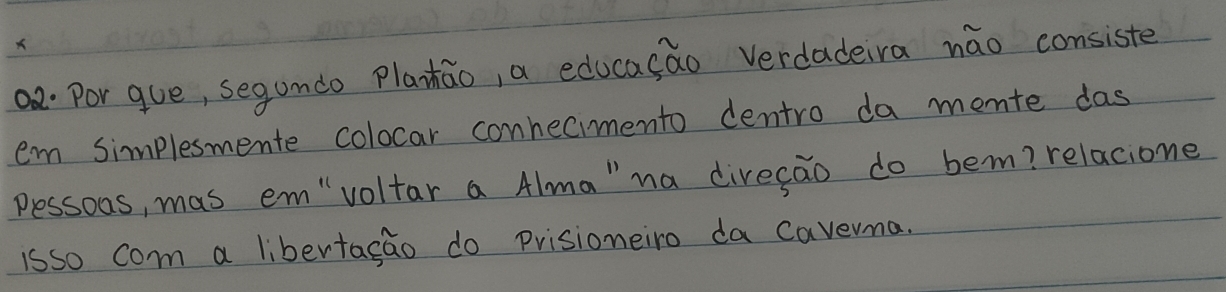 02. Por que, segundo Plantão, a educação verdadeira não consiste
em simplesmente colocar conhecimento dentro da mente das
pessoas, mas em "voltar a Alma" na direção do bem? relacione
isso com a libertação do prisioneiro da caverna.